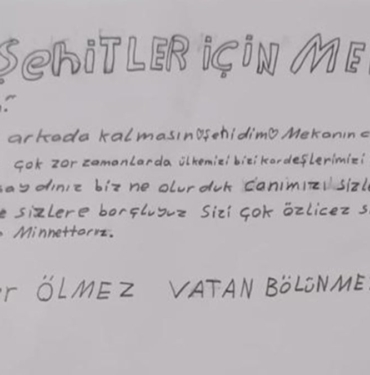 ŞehiTLER İÇİN ME
arkada kalmasın♡şehidim♡Mekanın c
çok zor zamanlarda ülkemizi bizi kardeşlerimizi
saydınız biz ne olurduk canımızı sizle
e sizlere borçluyuz sizi çok özlicez s
Minnettarız.
r ÖLMEZ VATAN BÖLÜNME